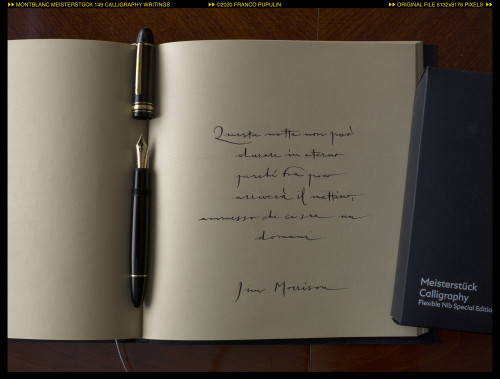 MONTBLANC MEISTERSTÜCK 149 CALLIGRAPHY WRITINGS
©2020 FRANCO PUPULIN
ORIGINAL FILE 6132x8176 PIXELS
Questa notte non può
durare in eterno
perché fra poco
arriverà il mattino,
ammesso che ci sia un
domani
Jim Morrison
Meisterstück
Calligraphy
Flexible Nib Special Editio